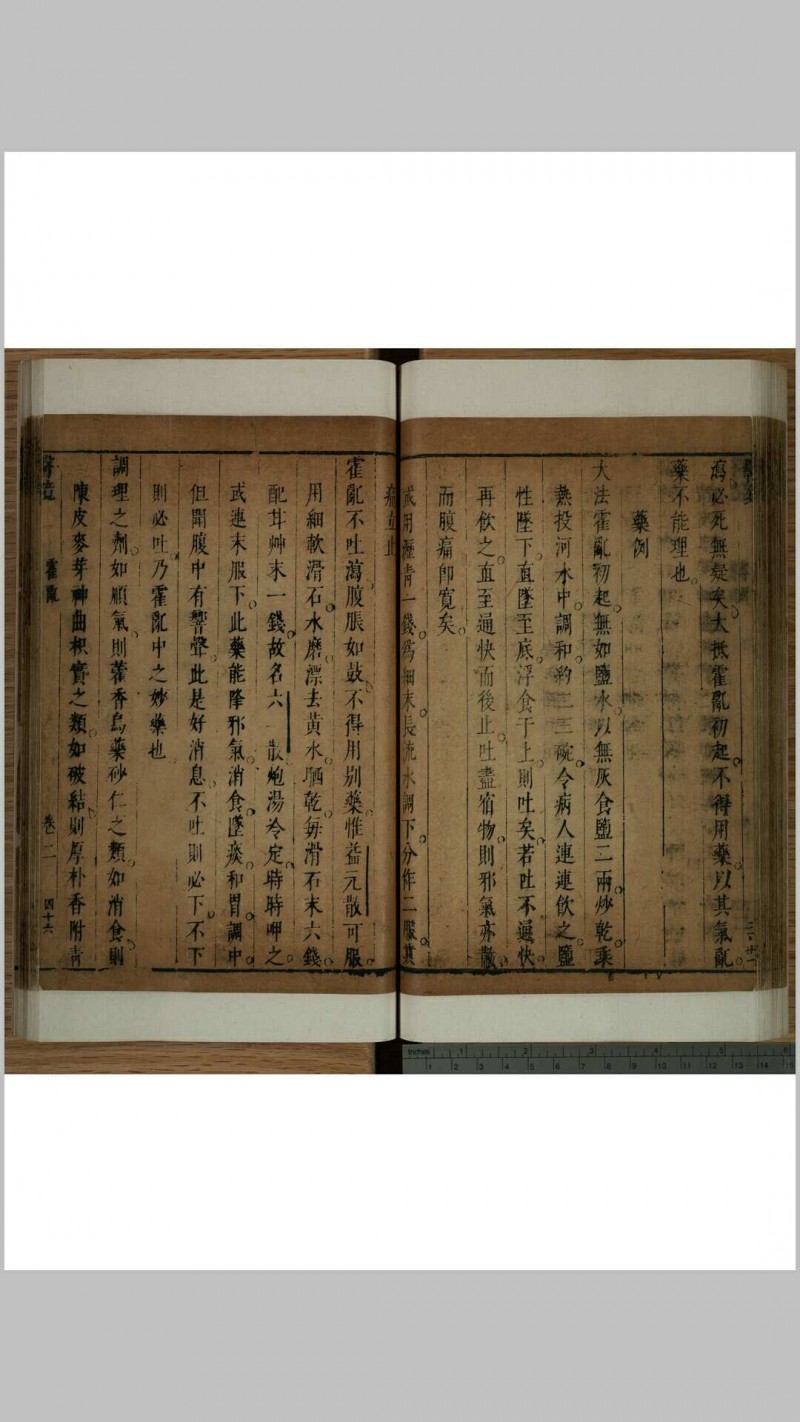 瀉必死無疑矣大抵霍亂初起不得用藥以其氣亂
藥不能理也
藥例
大法霍亂初起無如鹽水以無灰食鹽二兩炒乾乘
熱投河水中調和約二三碗令病人連連飲之鹽
性墜下直墜至底浮食于上則吐矣若吐不通快
再飲之直至通快而後止吐盡宿物則邪氣亦散
而腹痛即寬矣
或用瀝青一錢為細末長流水調下分作二服其
痛立止
霍亂不吐瀉腹脹如鼓不得用別藥惟益元散可服
用細軟滑石水磨漂去黃水晒乾每滑石末六錢
配甘艸末一錢故名六一散炮湯冷定時時呷之
或連末服下此藥能降邪氣消食墜痰和胃調中
但聞腹中有響聲此是好消息不吐則必下不下
則必吐乃霍亂中之妙藥也
調理之劑如順氣則藿香烏藥砂仁之類如消食則
陳皮麥芽神曲枳實之類如破結則厚朴香附青
霍亂 卷二 四十六